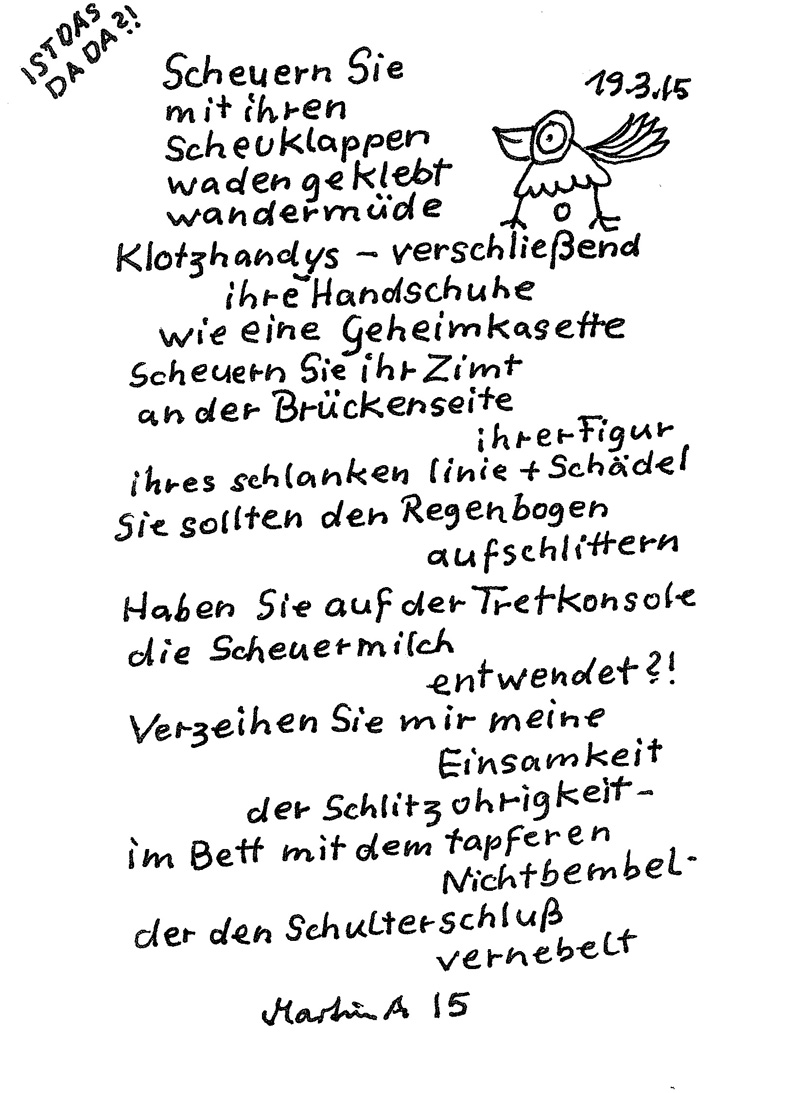 IST DAS
DADA?!
19.3.15
Scheuern Sie
mit ihren
Scheuklappen
waden geklebt
wandermüde
Klotzhandys – verschließend
ihre Handschuhe
wie eine Geheimkasette
Scheuern Sie ihr Zimt
an der Brückenseite
ihrer Figur
ihres schlanken linie + Schädel
Sie sollten den Regenbogen
aufschlittern
Haben Sie auf der Tretkonsole
die Scheuermilch
entwendet?!
Verzeihen Sie mir meine
Einsamkeit
der Schlitzohrigkeit –
im Bett mit dem tapferen
Nichtbembel -
der den Schulterschluß
vernebelt
Martin A 15